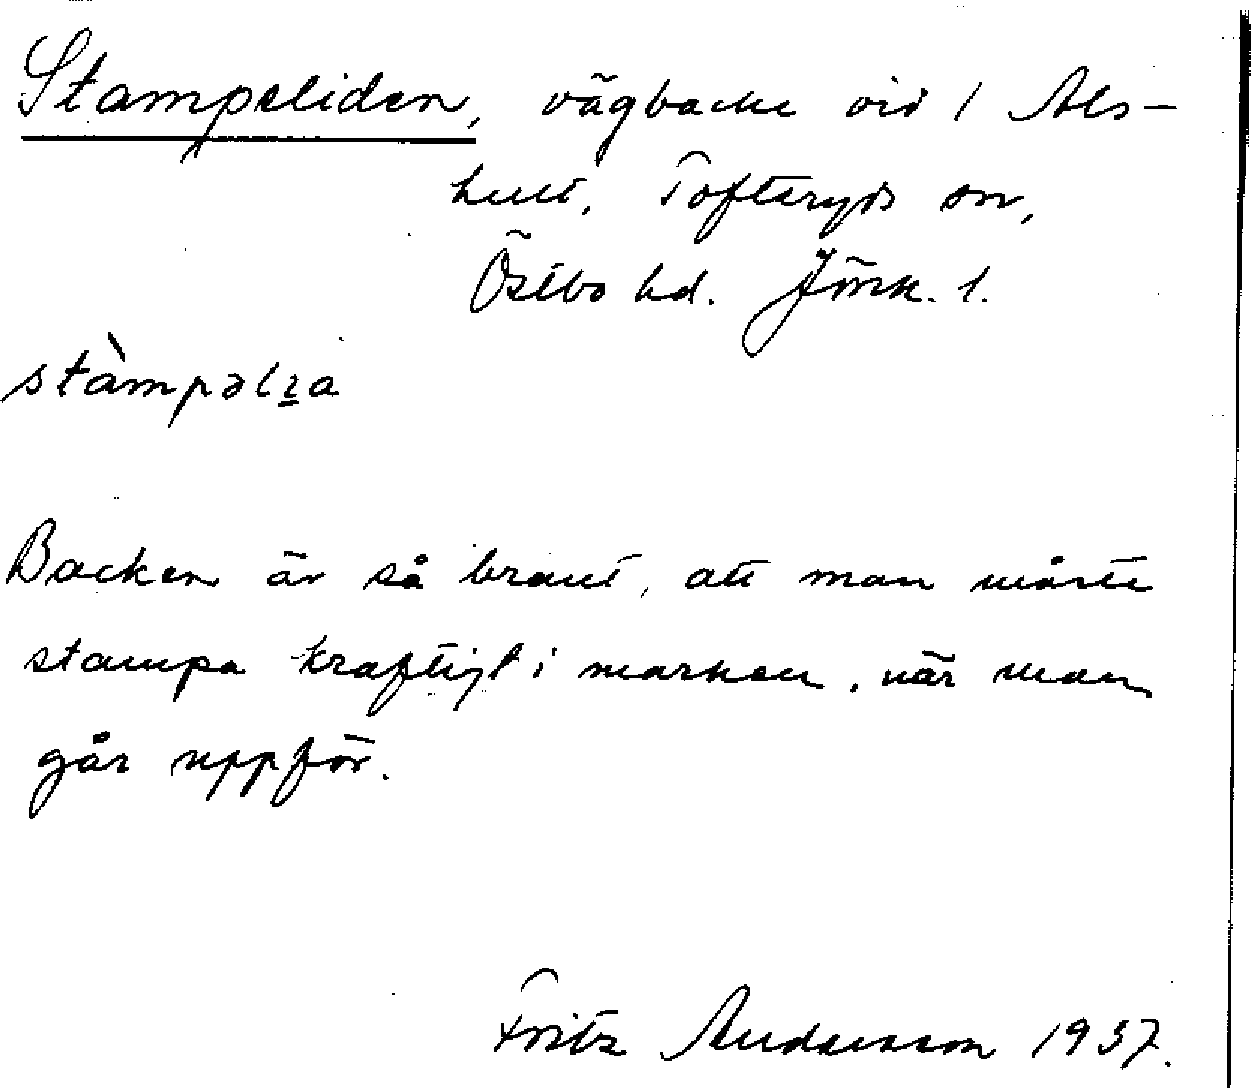 Stampeliden, vägbacke vid 1 Als-
hult, Tofteryds sn,
Östbo hd. Jönk. l.
stàmpəlıa
Backen är så brant, att man måste
stampa kraftigt i marken, när man
går uppför.
Fritz Andersson 1937.